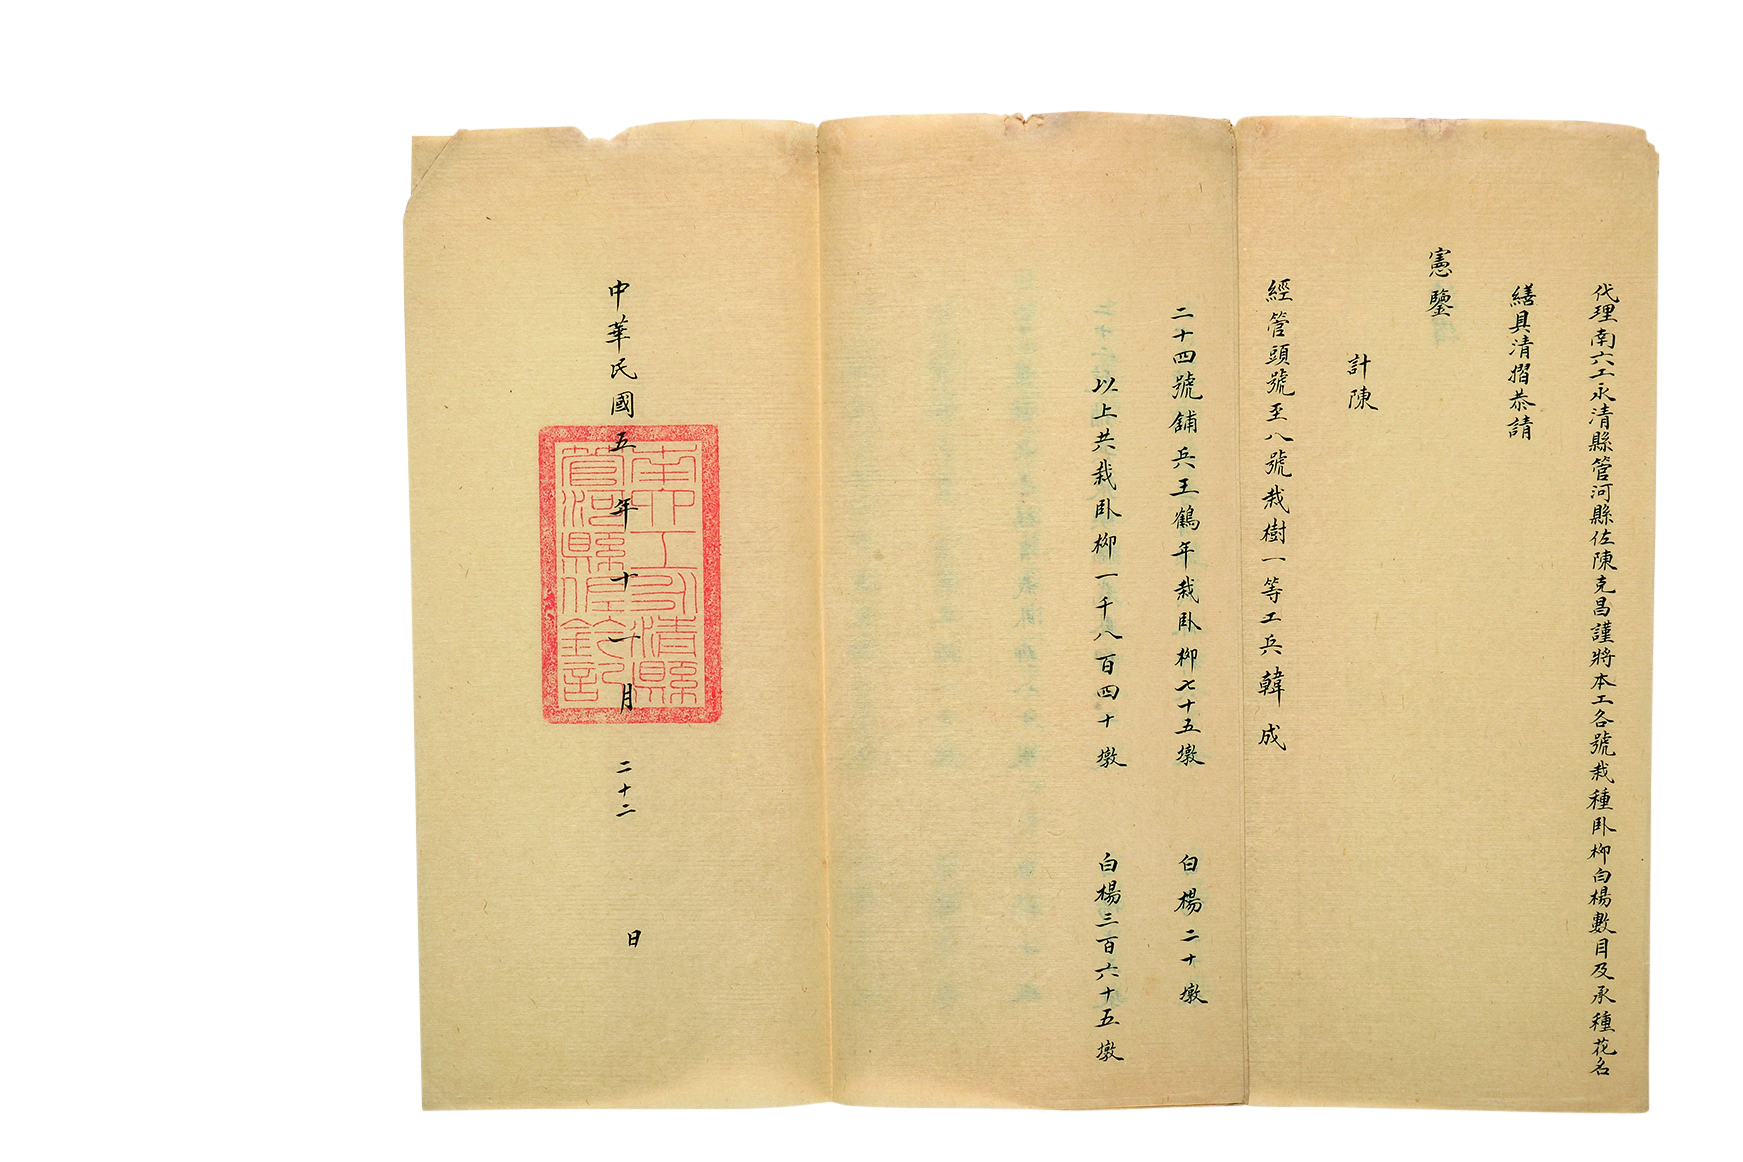 代理南六工永清縣管河縣佐陳克昌謹將本工各號栽種臥柳白楊數目及承種花名
繕具清摺恭請
憲鑒
計陳
經管頭號至八號栽樹一等工兵韓成
二十四號舖兵王鶴年栽臥柳七十五墩 白楊二十墩
以上共栽臥柳一千八百四十墩 白楊三百六十五墩
中華民國五年十一月二十二日
南六工永清縣
管河縣佐鈐記